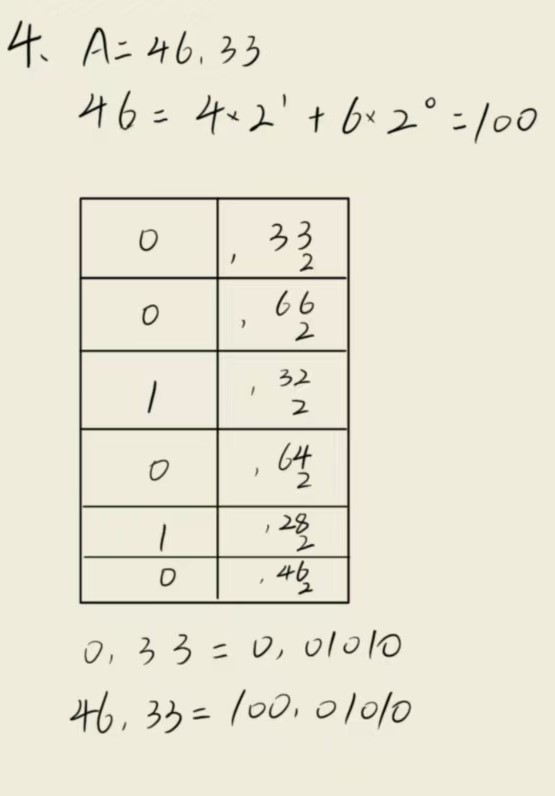 4、 A = 46,33
46 = 4×2¹ + 6×2⁰ = 100
0 , 33
2
0 , 66
2
1 , 32
2
0 , 64
2
1 , 28
2
0 , 46
2
0, 33 = 0, 01010
46, 33 = 100, 01010